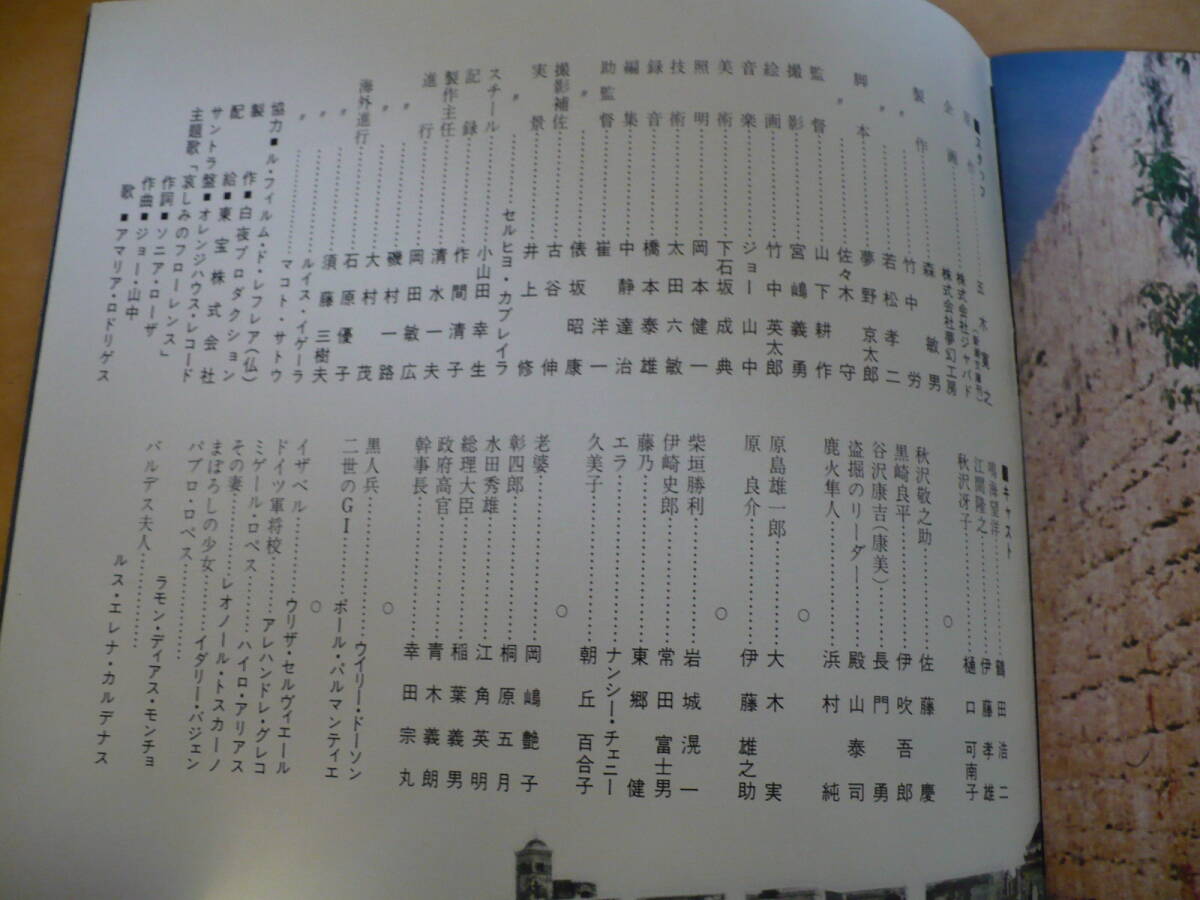 ■スタッフ
原作…………五木寛之
(新潮文庫刊)
企画…………株式会社ジャパード
株式会社夢幻工房
製作…………森敏男
〃…………竹中労
〃…………若松孝二
脚本…………夢野京太郎
〃…………佐々木守
監督…………山下耕作
撮影…………宮嶋義勇
絵画…………竹中英太郎
音楽…………ジョー山中
美術…………下石坂成典
照明…………岡本健一
技術…………太田六敏
録音…………橋本泰雄
編集…………中静達治
助監督…………崔洋一
〃…………俵坂昭康
撮影補佐…………古谷伸
実景…………井上修
〃…………セルヒヨ・カブレイラ
スチール…………小山田幸生
記録…………作間清子
製作主任…………清水一夫
進行…………岡田敏広
〃…………磯村一路
〃…………大村茂
海外進行…………石原優子
〃…………須藤三樹夫
〃…………ルイス・イゲーラ
〃…………マコト・サトウ
協力■ル・フィルム・ド・レフレア(仏)
製作■白夜プロダクション
配給■東宝株式会社
サントラ盤■オレンジハウス・レコード
主題歌「哀しみのフローレンス」
作詞■ソニア・ローザ
作曲■ジョー・山中
歌■アマリア・ロドリゲス
■キャスト
鳴海望洋…………鶴田浩二
江間隆之…………伊藤孝雄
秋沢冴子…………樋口可南子
○
秋沢敬之助…………佐藤慶
黒崎良平…………伊吹吾郎
谷沢康吉(康美)…………長門勇
盗掘のリーダー…………殿山泰司
鹿火隼人…………浜村純
○
原島雄一郎…………大木実
原良介…………伊藤雄之助
○
柴垣勝利…………岩城滉一
伊崎史郎…………常田富士男
藤乃…………東郷健
エラ…………ナンシー・チェニー
久美子…………朝丘百合子
○
老婆…………岡嶋艶子
彰四郎…………桐原五月
水田秀雄…………江角英明
総理大臣…………稲葉義男
政府高官…………青木義朗
幹事長…………幸田宗丸
○
黒人兵…………ウイリー・ドーソン
二世のGI…………ポール・パルマンティエ
○
イザベル…………ウリザ・セルヴィエール
ドイツ軍将校…………アレハンドレ・グレコ
ミゲール・ロペス…………ハイロ・アリアス
その妻…………レオノール・トスカーノ
まぼろしの少女…………イダリー・バジェン
パブロ・ロペス…………ラモン・ディアス・モンチョ
バルデス夫人…………ルス・エレナ・カルデナス